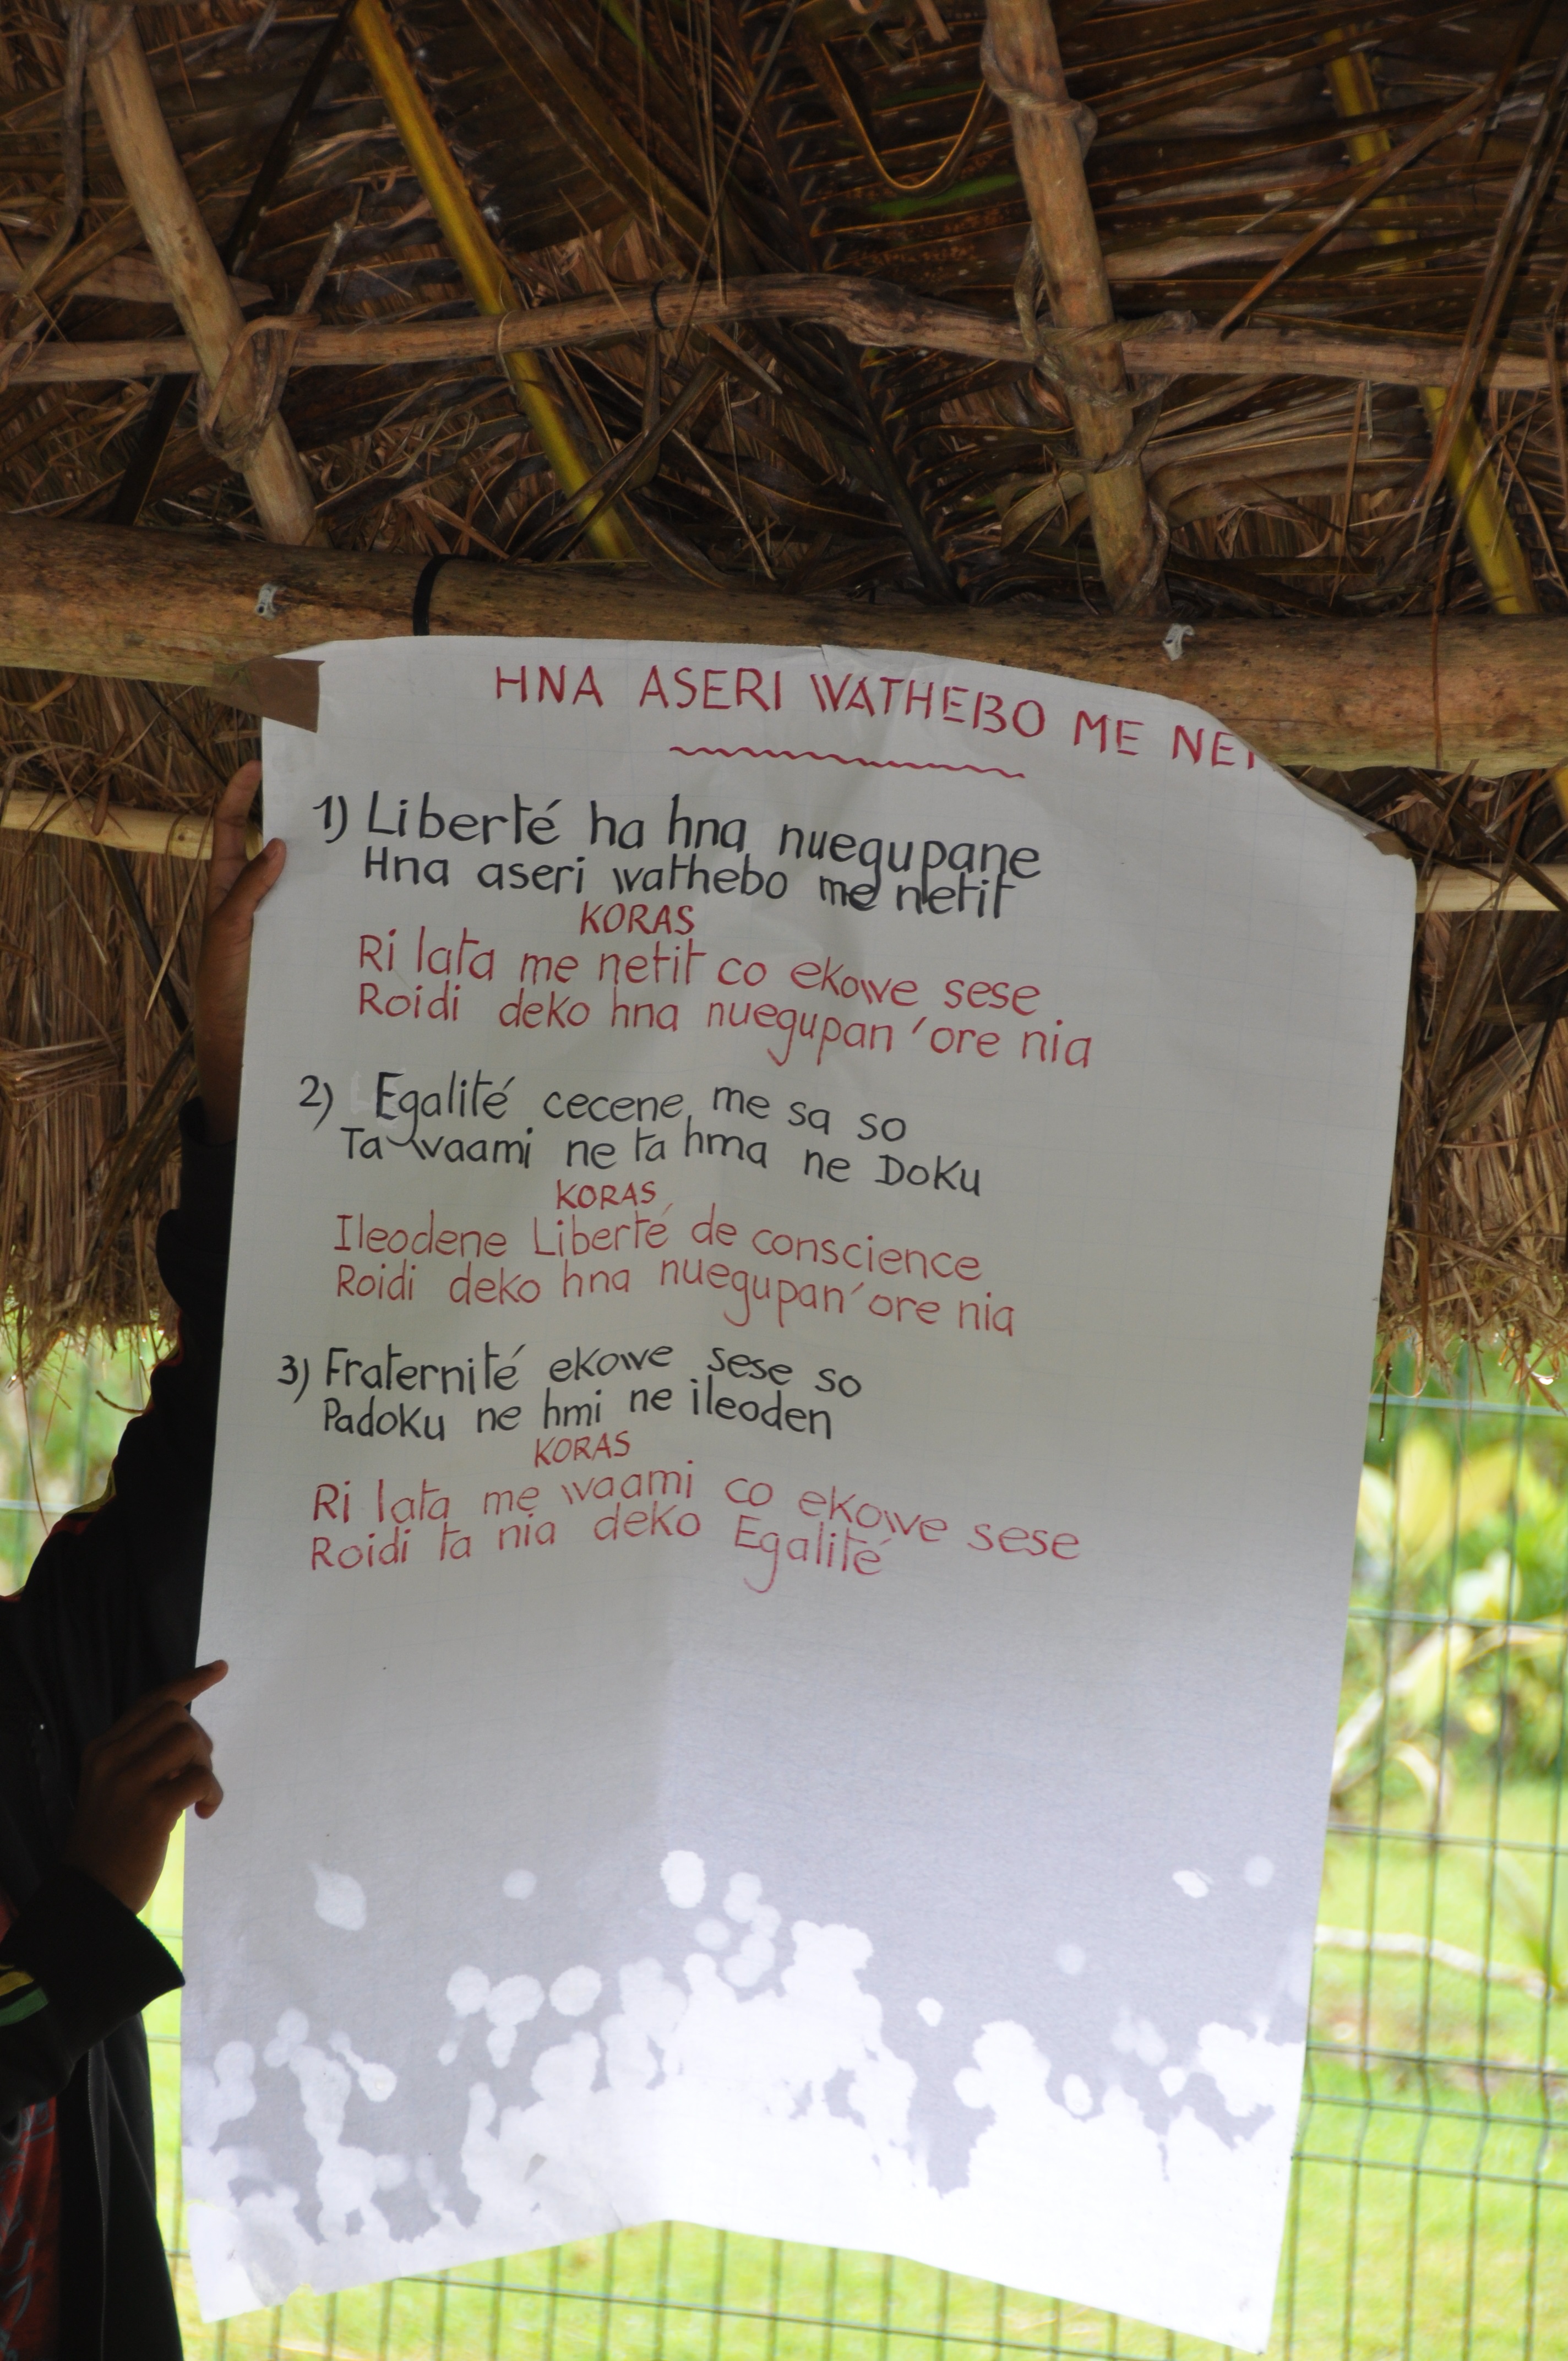 HNA ASERI WATHEBO ME
1) Liberté ha hna nuegupane
Hna aseri wathebo me netit
KORAS
Ri lata me netit co ekowe sese
Roidi deko hna nuegupan'ore nia
2) Egalité cecene, me sa so
Ta waami ne ta hma ne Doku
KORAS
Ileodene Liberté de conscience
Roidi deko hna nuegupan'ore nia
3) Fraternité ekowe sese so
Padoku ne hmi ne ileoden
KORAS
Ri lata me waami co ekowe sese
Roidi ta nia deko Egalité